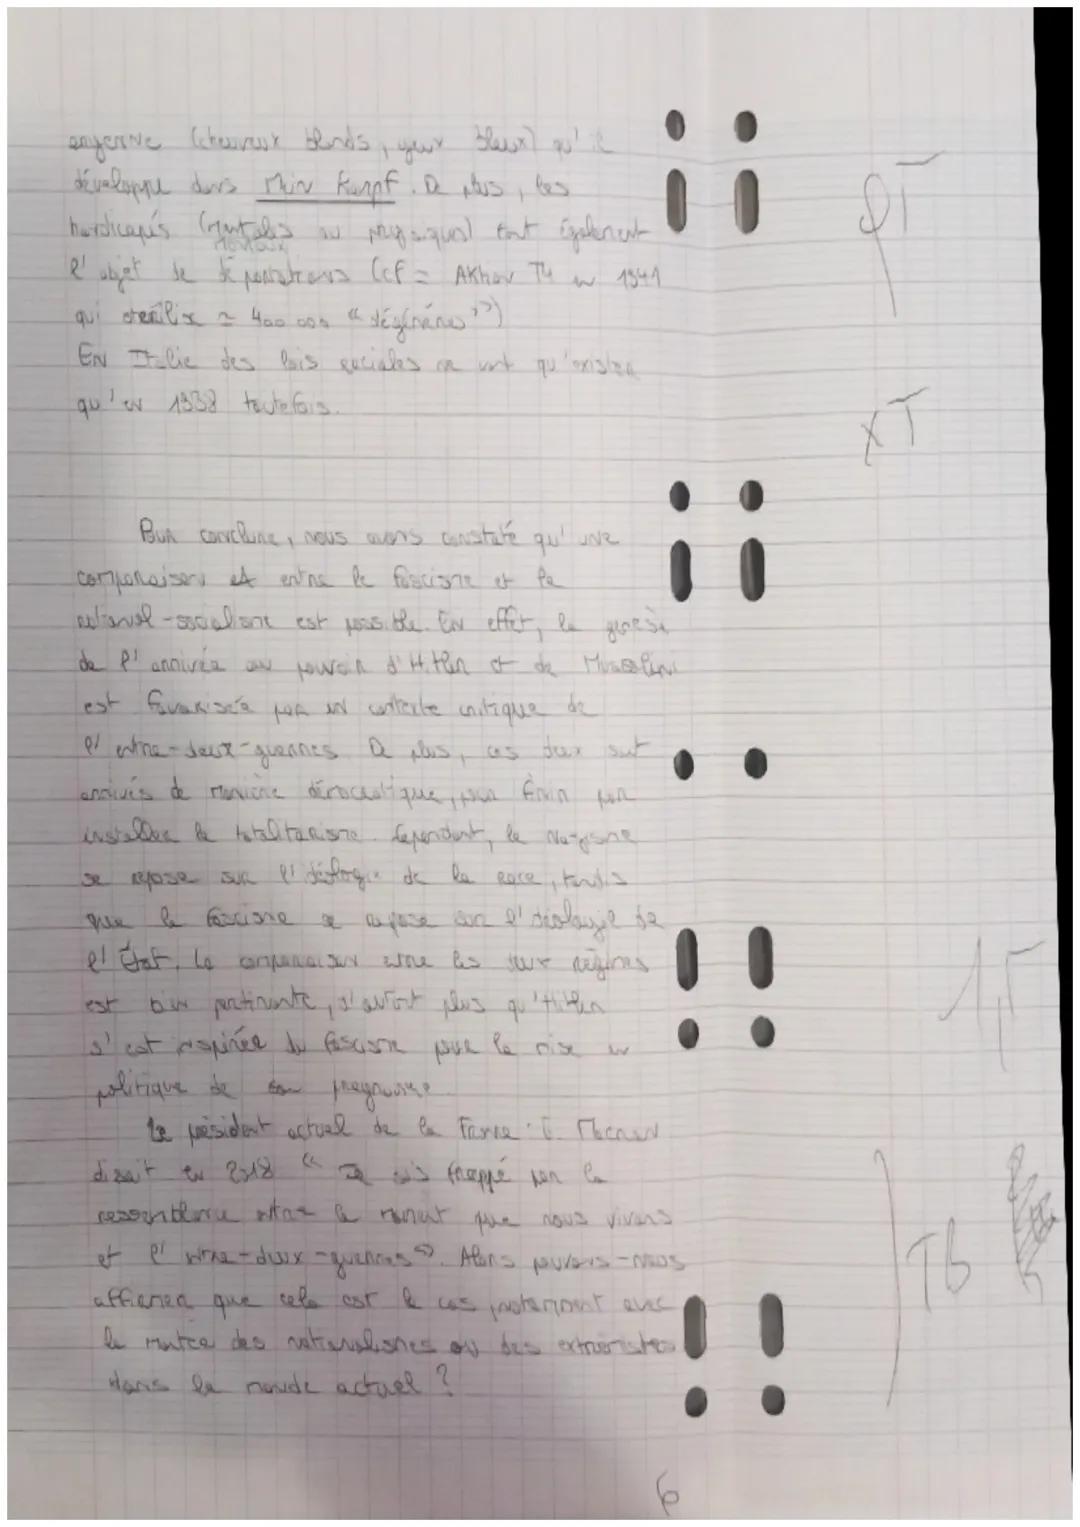 aryenne (cheveux blonds, yeux bleux) qu'il
développe dans Mein Kampf. De plus, les
handicapés (mentales ou physiques) font également
mentaux
l'objet de déportations (cf = Aktion T4 en 1941
qui stérilise ≃ 400 000 "dégénérés")
En Italie des lois raciales ne vont qu'exister
qu'en 1938 toutefois.
Pour conclure, nous avons constaté qu'une
comparaison entre le fascisme et le
national-socialisme est possible. En effet, la genèse
de l'arrivée au pouvoir d'Hitler et de Mussolini
est favorisée par un contexte critique de
l'entre-deux-guerres. De plus, ces deux sont
arrivés de manière démocratique, pour finir par
installer le totalitarisme. Cependant, le Nazisme
se repose sur l'idéologie de la race, tandis
que le fascisme se repose sur l'idéologie de
l'État. La comparaison entre les deux régimes
est bien pertinente, d'autant plus qu'Hitler
s'est inspirée du fascisme pour la mise en
politique de son programme.
Le président actuel de la France : E. Macron
disait en 2018 " Je suis frappé par la
ressemblance entre le moment que nous vivons
et l'entre-deux-guerres ". Alors pouvons-nous
affirmer que cela est le cas, notamment avec
la montée des nationalismes ou des extrémistes
dans le monde actuel ?
φT
XT
1,5
TB
6